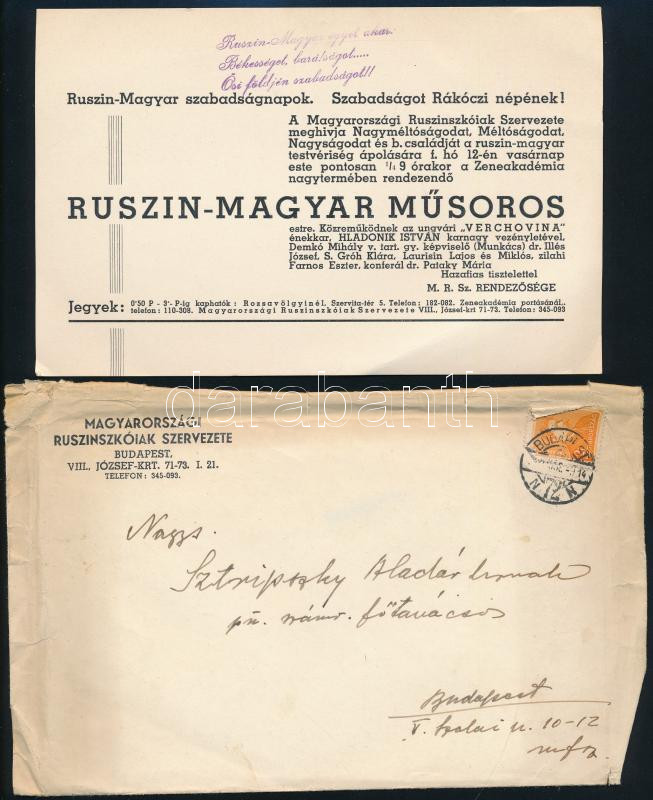 Ruszin-Magyar egyet akar:
Békességet, barátságot.....
Ősi földjén szabadságot!!
Ruszin-Magyar szabadságnapok. Szabadságot Rákóczi népének!
A Magyarországi Ruszinszkóiak Szervezete
meghivja Nagyméltóságodat, Méltóságodat,
Nagyságodat és b. családját a ruszin-magyar
testvériség ápolására f. hó 12-én vasárnap
este pontosan 3/4 9 órakor a Zeneakadémia
nagytermében rendezendő
RUSZIN-MAGYAR MŰSOROS
estre. Közreműködnek az ungvári „VERCHOVINA"
énekkar, HLADONIK ISTVÁN karnagy vezényletével,
Demkó Mihály v. tart. gy. képviselő (Munkács) dr. Illés
József, S. Gróh Klára, Laurisin Lajos és Miklós, zilahi
Farnos Eszter, konferál dr. Pataky Mária
Hazafias tisztelettel
M. R. Sz. RENDEZŐSÉGE
Jegyek: 0'50 P - 3'- P-ig kaphatók: Rozsavölgyinél, Szervita-tér 5. Telefon: 182-082. Zeneakadémia portásánál,
telefon: 110-308. Magyarországi Ruszinszkóiak Szervezete VIII., József-krt 71-73. Telefon: 345-093
darabanth
MAGYARORSZÁGI
RUSZINSZKÓIAK SZERVEZETE
BUDAPEST,
VIII., JÓZSEF-KRT. 71-73. I. 21.
TELEFON: 345-093.
BUDAPEST
Nagys.
Sztripszky Aladár urnak
pü. számv. főtanácsos
Budapest
V. Szalai u. 10-12